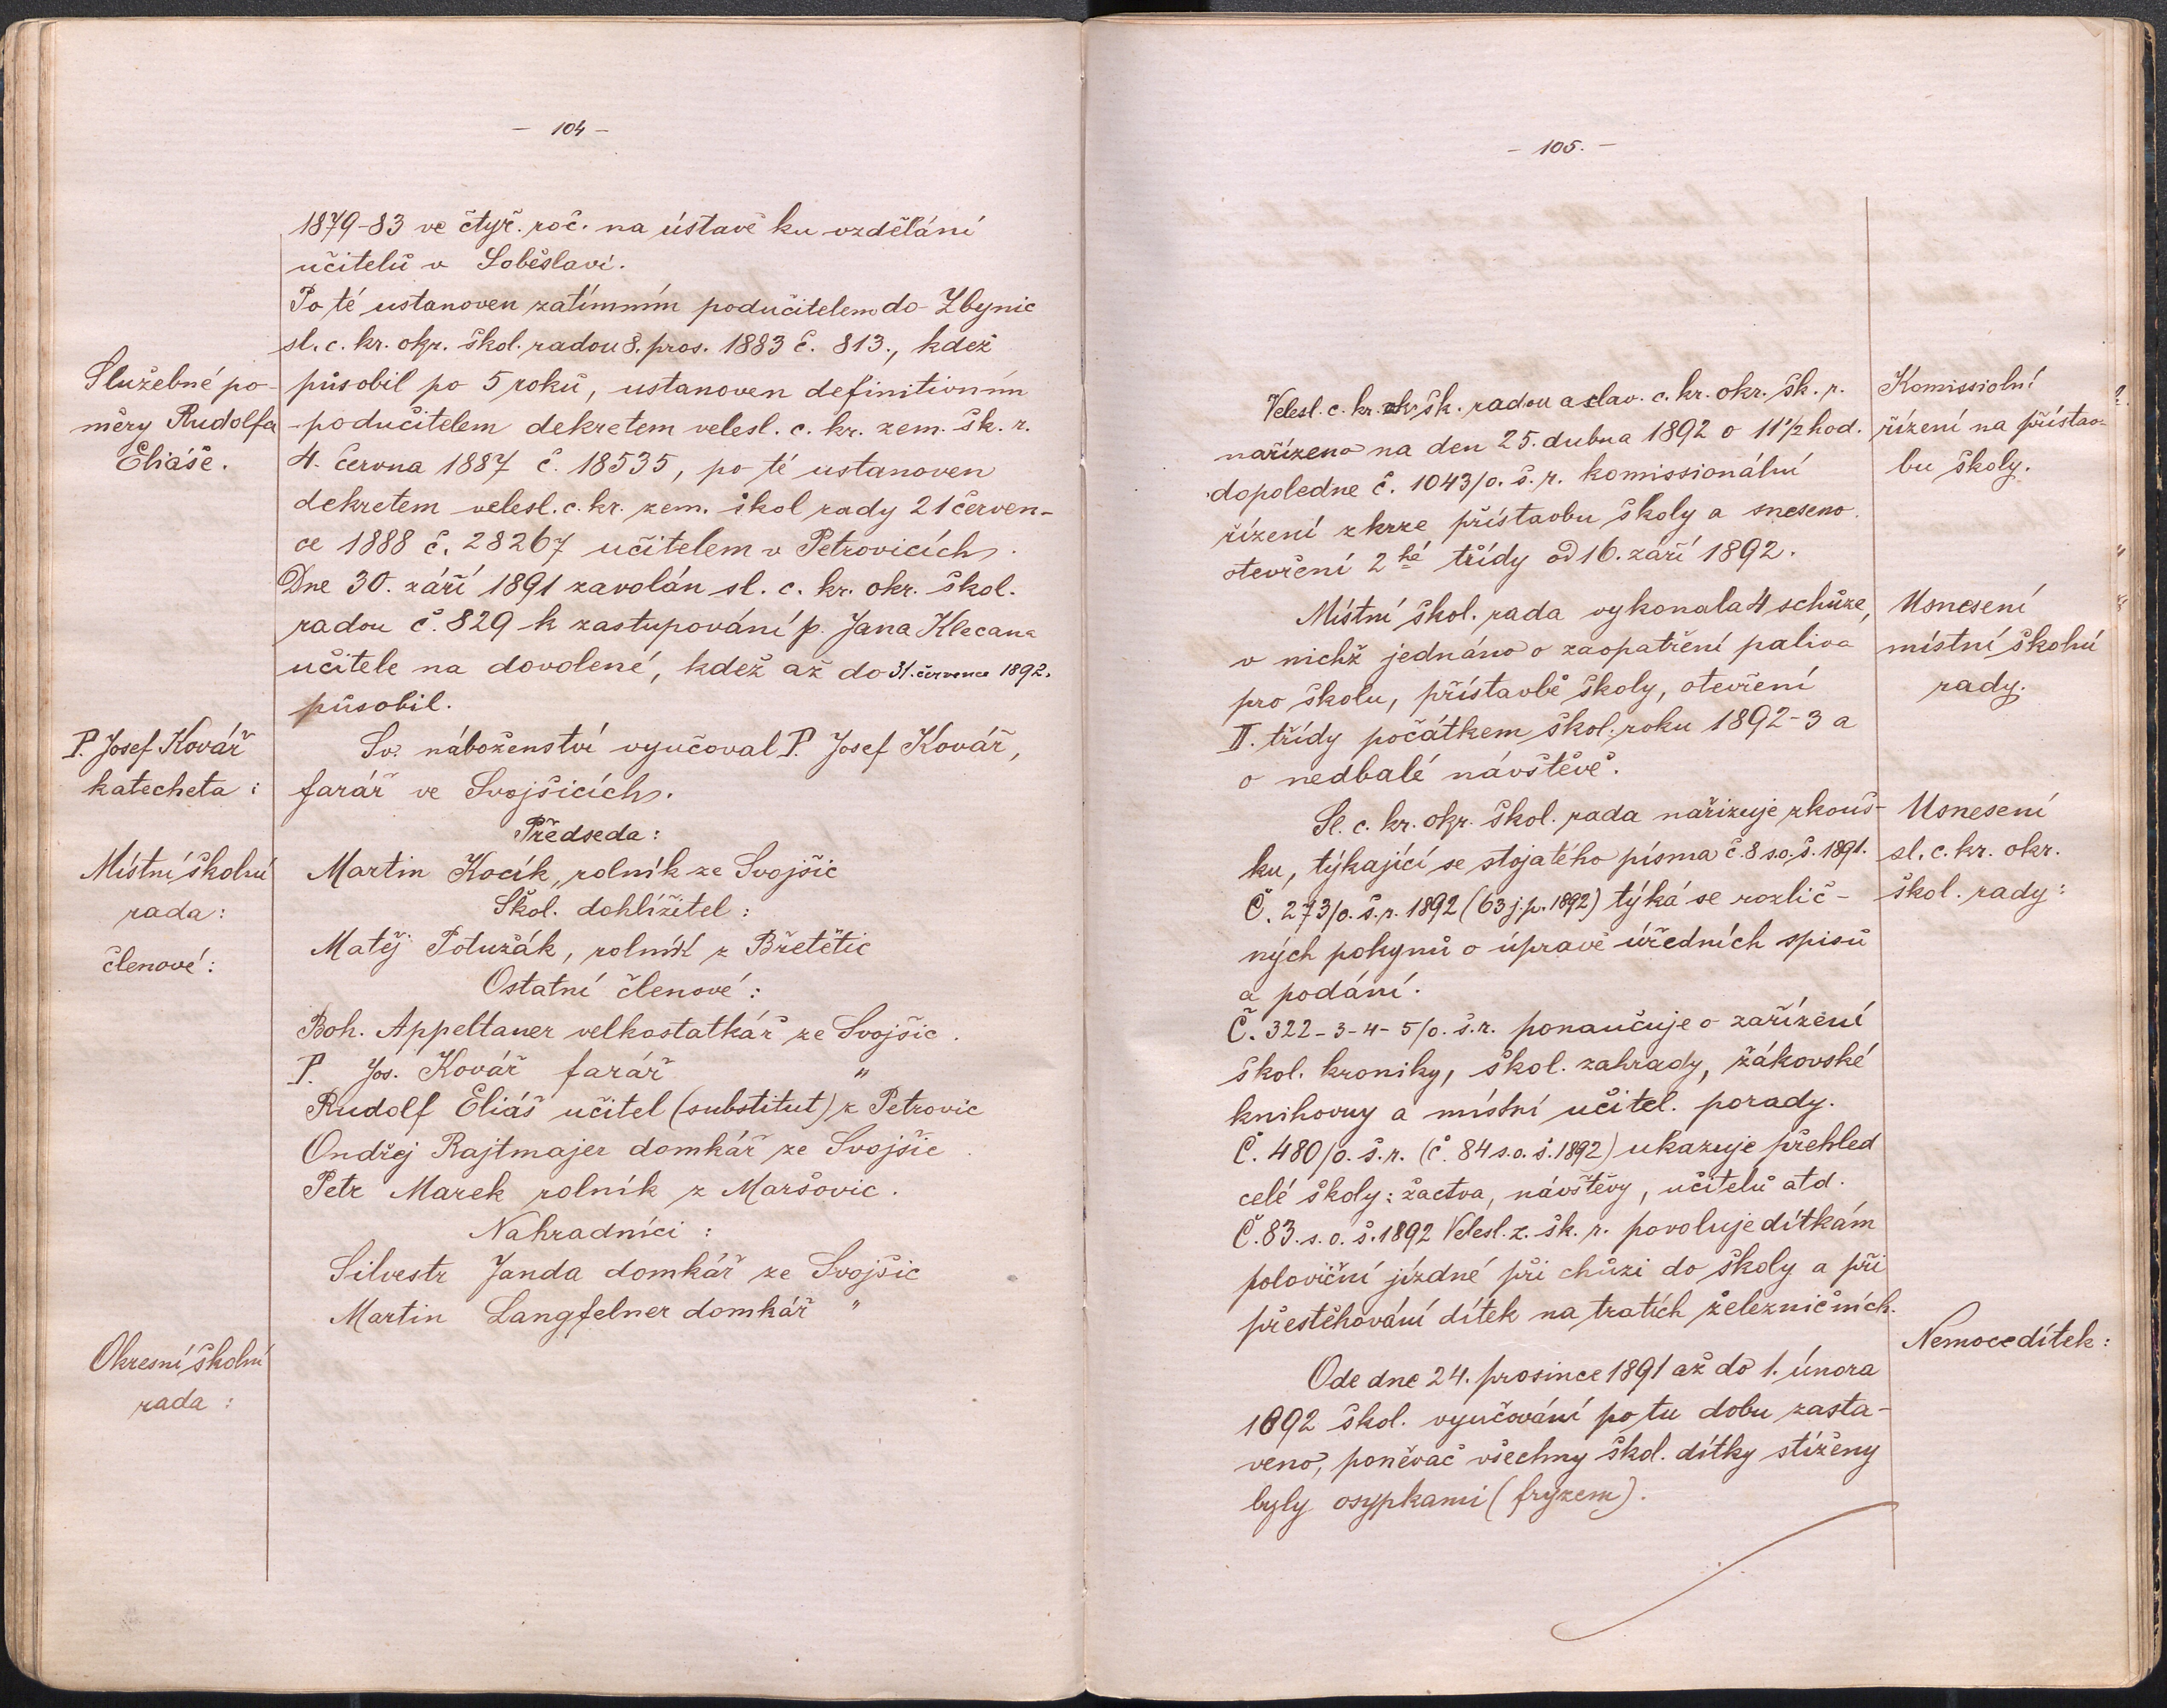 - 104 -
1879-83 ve čtyř. roč. na ústavě ku vzdělání
učitelů v Soběslavi.
Po té ustanoven zatímním podučitelem do Zbynic
sl. c. kr. okr. škol. radou 8. pros. 1883 č. 813., kdež
působil po 5 roků, ustanoven definitivním
podučitelem dekretem velesl. c. kr. zem. šk. r.
4. června 1887 č. 18535, po té ustanoven
dekretem velesl. c. kr. zem. škol rady 21 červen-
ce 1888 č. 28267 učitelem v Petrovicích.
Dne 30. září 1891 zavolán sl. c. kr. okr. škol.
radou č. 829 k zastupování p. Jana Klecana
učitele na dovolené, kdež až do 31. července 1892.
působil.
Služebné po-
měry Rudolfa
Eliáše.
P. Josef Kovář
katecheta:
Sv. náboženství vyučoval P. Josef Kovář,
farář ve Svojšicích.
Místní školní
rada:
členové:
Předseda:
Martin Kocík, rolník ze Svojšic
Škol. dohlížitel:
Matěj Potužák, rolník z Břetětic
Ostatní členové:
Boh. Appeltauer velkostatkář ze Svojšic.
P. Jos. Kovář farář "
Rudolf Eliáš učitel (substitut) z Petrovic
Ondřej Rajtmajer domkář ze Svojšic.
Petr Marek rolník z Maršovic.
Nahradníci:
Silvestr Janda domkář ze Svojšic
Martin Langfelner domkář "
Okresní školní
rada:
- 105. -
Velesl. c. kr. šk. radou a slav. c. kr. okr. šk. r.
nařízeno na den 25. dubna 1892 o 11 1/2 hod.
dopoledne č. 1043/o. š. r. komissionální
řízení zkrze přístavbu školy a sneseno
otevření 2hé třídy od 16. září 1892.
Komissiolní
řízení na přístav-
bu školy.
Místní škol. rada vykonala 4 schůze,
v nichž jednáno o zaopatření paliva
pro školu, přístavbě školy, otevření
II. třídy počátkem škol. roku 1892-3 a
o nedbalé návštěvě.
Usnesení
místní školní
rady.
Sl. c. kr. okr. škol. rada nařizuje zkouš-
ku, týkající se stojatého písma č. 8 s. o. š. 1891.
Č. 273/o. š. r. 1892 (63 j. p. 1892) týká se rozlič-
ných pokynů o úpravě úředních spisů
a podání.
Č. 322-3-4-5/o. š. r. ponaučuje o zařízení
škol. kroniky, škol. zahrady, žákovské
knihovny a místní učitel. porady.
Č. 480/o. š. r. (č. 84 s. o. š. 1892) ukazuje přehled
celé školy: žactva, návštěvy, učitelů atd.
Č. 83. s. o. š. 1892 Velesl. z. šk. r. povoluje dítkám
poloviční jízdné při chůzi do školy a při
přestěhování dítek na tratích železničních.
Usnesení
sl. c. kr. okr.
škol. rady:
Nemoce dítek:
Ode dne 24. prosince 1891 až do 1. února
1892 škol. vyučování po tu dobu zasta-
veno, poněvač všechny škol. dítky stíženy
byly osypkami (frýzem).